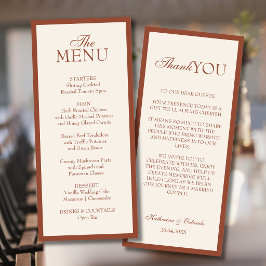 The
MENU
STARTERS
Shrimp Cocktail
Roasted Tomato Soup
MAIN
Herb Roasted Chicken
with Garlic Mashed Potatoes
and Honey Glazed Carrots
Seared Beef Tenderloin
with Truffle Potatoes
and Green Beans
Creamy Mushroom Pasta
with Spinach
and Parmesan Cheese
DESSERT
Vanilla Wedding Cake
Macarons | Cheesecake
DRINKS & COCKTAILS
Open Bar
Thank YOU
TO OUR DEAR GUESTS,
YOUR PRESENCE TODAY IS A
GIFT WE'LL ALWAYS CHERISH.
IT MEANS SO MUCH TO SHARE
THIS MOMENT WITH THE
PEOPLE WHO BRING WARMTH
AND HAPPINESS INTO OUR
LIVES.
WE INVITE YOU TO
CELEBRATE WITH US, ENJOY
THE EVENING, AND HELP US
CREATE MEMORIES WE'LL
HOLD CLOSE AS WE BEGIN
OUR JOURNEY AS A MARRIED
COUPLE.
Katherine & Orlando